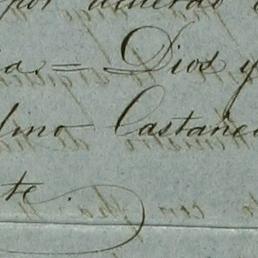 por acuerdo
ia. = Dios y
lino Castañe
te.